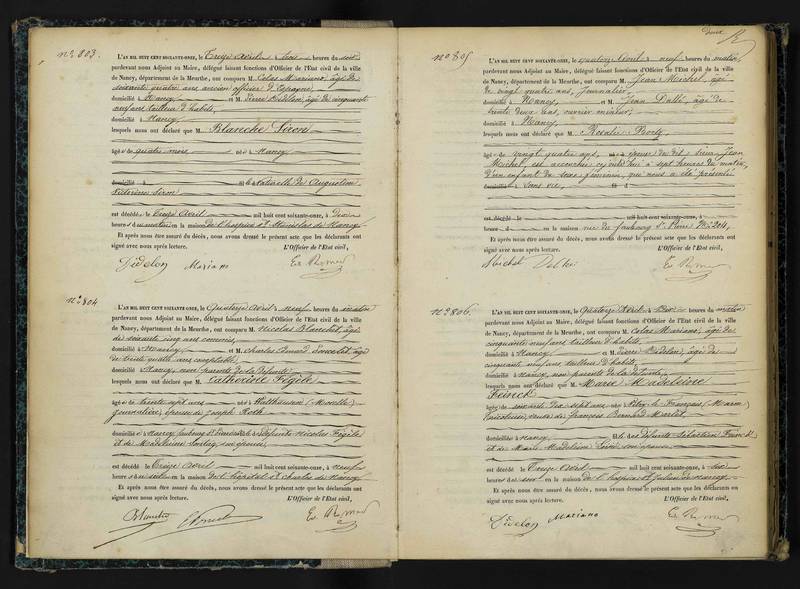 N° 803.
L'AN MIL HUIT CENT SOIXANTE-ONZE, le Treize avril à trois heures du soir
pardevant nous Adjoint au Maire, délégué faisant fonctions d'Officier de l'Etat civil de la ville
de Nancy, département de la Meurthe, ont comparu M. Colas Mariano, âgé de
soixante quatre ans ancien officier d'Espagne,
domicilié à Nancy et M. Pierre Didelon, âgé de cinquante
neuf ans tailleur d'habits,
domicilié à Nancy
lesquels nous ont déclaré que M. Blanche Siron
âgée de quatre mois née à Nancy
domicilié à fille naturelle de Augustine
Siron
est décédé le Treize avril mil huit cent soixante-onze, à
heures du matin en la maison de l'hospice St Stanislas de Nancy.
Et après nous être assuré du décès, nous avons dressé le présent acte que les déclarants ont
signé avec nous après lecture. L'Officier de l'Etat civil,
Didelon Mariano
N° 804
L'AN MIL HUIT CENT SOIXANTE-ONZE, le Quatorze avril à neuf heures du matin
pardevant nous Adjoint au Maire, délégué faisant fonctions d'Officier de l'Etat civil de la ville
de Nancy, département de la Meurthe, ont comparu M. Nicolas Blanchet, âgé
de soixante cinq ans commis,
domicilié à Nancy et M. Charles âgé
de trente quatre ans comptable,
domicilié à Nancy, non parents de la défunte
lesquels nous ont déclaré que M. Catherine Fégile
âgée de trente sept ans née à (Moselle)
journalière, épouse de Joseph Roth
domiciliée à Nancy faubourg St fille de défunts Nicolas Fégile
et de Madeleine son épouse,
est décédé le Treize avril mil huit cent soixante-onze, à neuf
heures du soir en la maison de l'hôpital St Charles de Nancy.
Et après nous être assuré du décès, nous avons dressé le présent acte que les déclarants ont
signé avec nous après lecture. L'Officier de l'Etat civil,
Blanchet
N° 805
L'AN MIL HUIT CENT SOIXANTE-ONZE, le quatorze avril à neuf heures du matin,
pardevant nous Adjoint au Maire, délégué faisant fonctions d'Officier de l'Etat civil de la ville
de Nancy, département de la Meurthe, ont comparu M. Jean Michel, âgé
de vingt quatre ans, journalier,
domicilié à Nancy, et M. Jean âgé de
trente deux ans, ouvrier mineur,
domicilié à Nancy,
lesquels nous ont déclaré que M. Rosalie
âgée de vingt quatre ans, épouse du dit sieur Jean
Michel, est accouchée aujourd'hui à sept heures du matin,
d'un enfant du sexe féminin, que nous a été présenté
domicilié à sans vie,
est décédé le mil huit cent soixante-onze, à
heure d en la maison rue du faubourg St Pierre N° 204,
Et après nous être assuré du décès, nous avons dressé le présent acte que les déclarants ont
signé avec nous après lecture. L'Officier de l'Etat civil,
Michel
N° 806.
L'AN MIL HUIT CENT SOIXANTE-ONZE, le Quatorze avril à heures du matin
pardevant nous Adjoint au Maire, délégué faisant fonctions d'Officier de l'Etat civil de la ville
de Nancy, département de la Meurthe, ont comparu M. Colas Mariano, âgé de
cinquante neuf ans tailleur d'habits,
domicilié à Nancy et M. Pierre Didelon, âgé de
cinquante neuf ans tailleur d'habits,
domicilié à Nancy, non parents de la défunte,
lesquels nous ont déclaré que M. Marie Madeleine
Feinck
âgée de soixante dix sept ans née à Vitry-le-Français (Marne)
veuve de François Bernard
domiciliée à Nancy fille de défunts Sébastien Feinck
et de Marie Madeleine son épouse
est décédé le Treize avril mil huit cent soixante-onze, à
heures du soir en la maison de l'hospice St Julien de Nancy.
Et après nous être assuré du décès, nous avons dressé le présent acte que les déclarants ont
signé avec nous après lecture. L'Officier de l'Etat civil,
Didelon Mariano